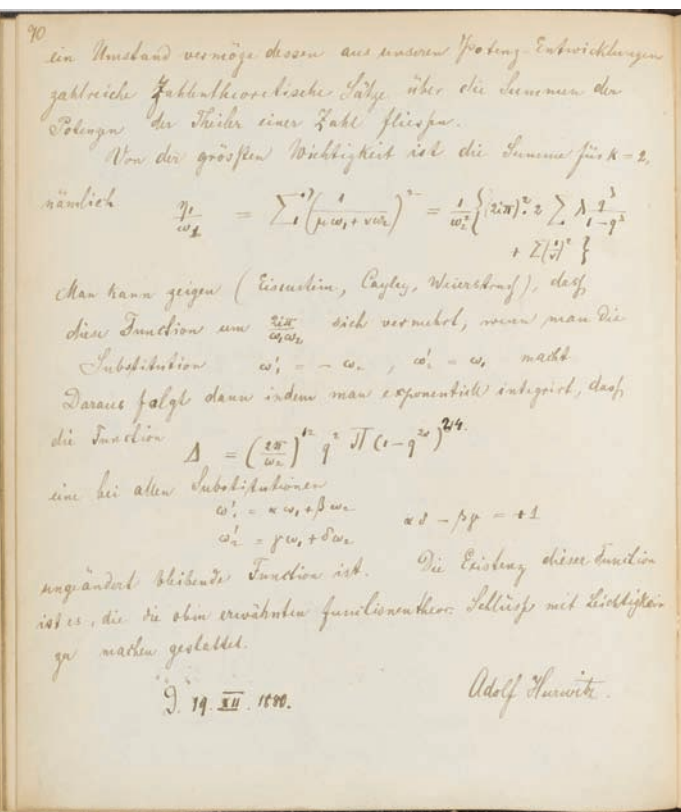 90
ein Umstand vermöge dessen aus unseren Potenz-Entwicklungen
zahlreiche Zahlentheoretische Sätze über die Summen der
Potenzen der Theiler einer Zahl fliessen.
Von der grössten Wichtigkeit ist die Summe für k = 2,
nämlich η₁/ω₁ = ∑' (1/(μω₁+νω₂))² = 1/ω₂² { (2iπ)². 2 ∑ λ q^λ/(1-q^λ)
+ ∑(1/ν)² }
Man kann zeigen (Eisenstein, Cayley, Weierstrass), dass
diese Function um 2iπ/ω₁ω₂ sich vermehrt, wenn man die
Substitution ω₁' = - ω₂ , ω₂' = ω₁ macht
Daraus folgt dann indem man exponentiell integrirt, dass
die Function Δ = (2π/ω₂)¹² q² Π (1-q^2ν)^24.
eine bei allen Substitutionen
ω₁' = αω₁+βω₂
αδ - βγ = +1
ω₂' = γω₁+δω₂
ungeändert bleibende Function ist. Die Existenz dieser Function
ist es, die die oben erwähnten functionentheor. Schlüsse mit Leichtigkeit
zu machen gestattet.
D. 19. XII. 1880. Adolf Hurwitz.